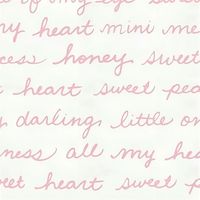 of my eye sweet
my heart mini me
cess honey sweet
t heart sweet pea
y darling little on
ness all my hea
eet heart sweet p